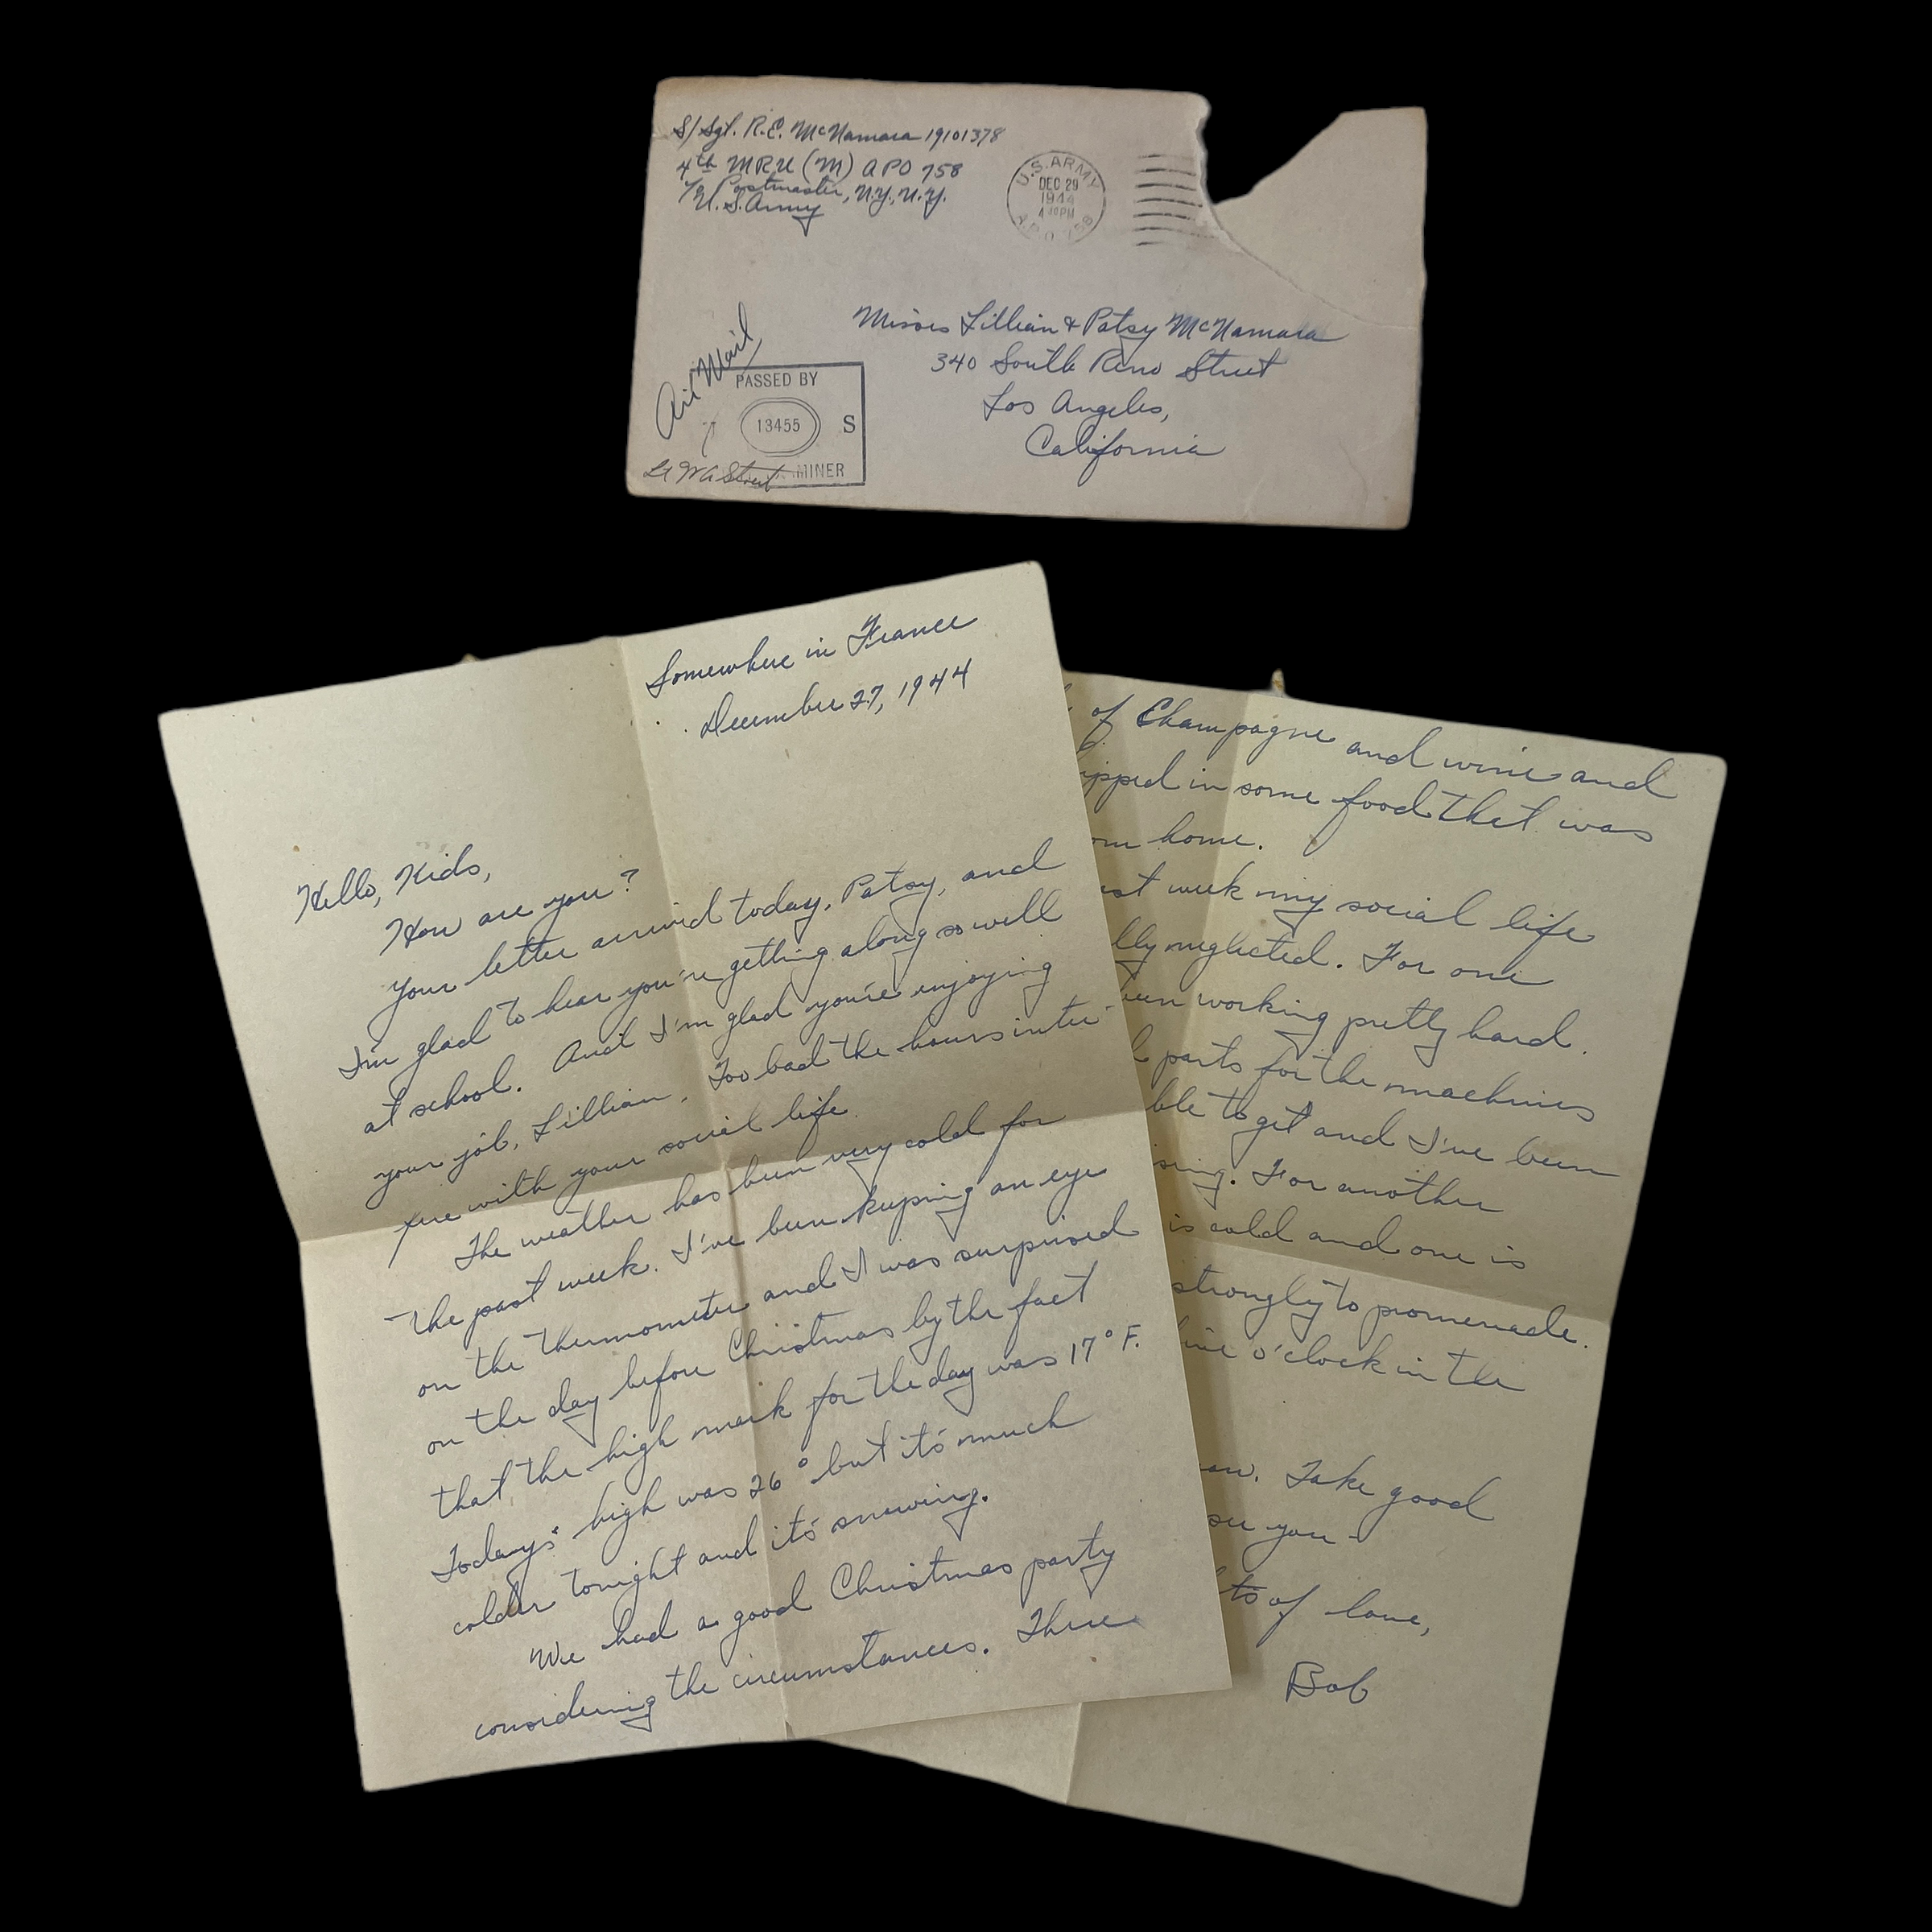 S/Sgt. R.E. McNamara 19101378
4th MRU (M) APO 758
c/o Postmaster, N.Y., N.Y.
U.S. Army
U.S. ARMY
DEC 29
1944
4 PM
A.P.O. 758
Misses Lillian & Patsy McNamara
340 South Reno Street
Los Angeles,
California
Air Mail
PASSED BY
13455 S
MINER
Somewhere in France
December 27, 1944
Hello, Kids,
How are you?
Your letter arrived today, Patsy, and
I'm glad to hear you're getting along so well
at school. And I'm glad you're enjoying
your job, Lillian. Too bad the hours inter-
fere with your social life.
The weather has been very cold for
the past week. I've been keeping an eye
on the thermometer and I was surprised
on the day before Christmas by the fact
that the high mark for the day was 17° F.
Todays' high was 26° but it's much
colder tonight and it's snowing.
We had a good Christmas party
considering the circumstances. There
of Champagne and wine and
ipped in some food that was
om home.
st week my social life
lly neglected. For one
een working pretty hard.
parts for the machines
ble to get and I've been
sing. For another
is cold and one is
strongly to promenade.
ine o'clock in the
ow. Take good
see you -
ts of love,
Bob